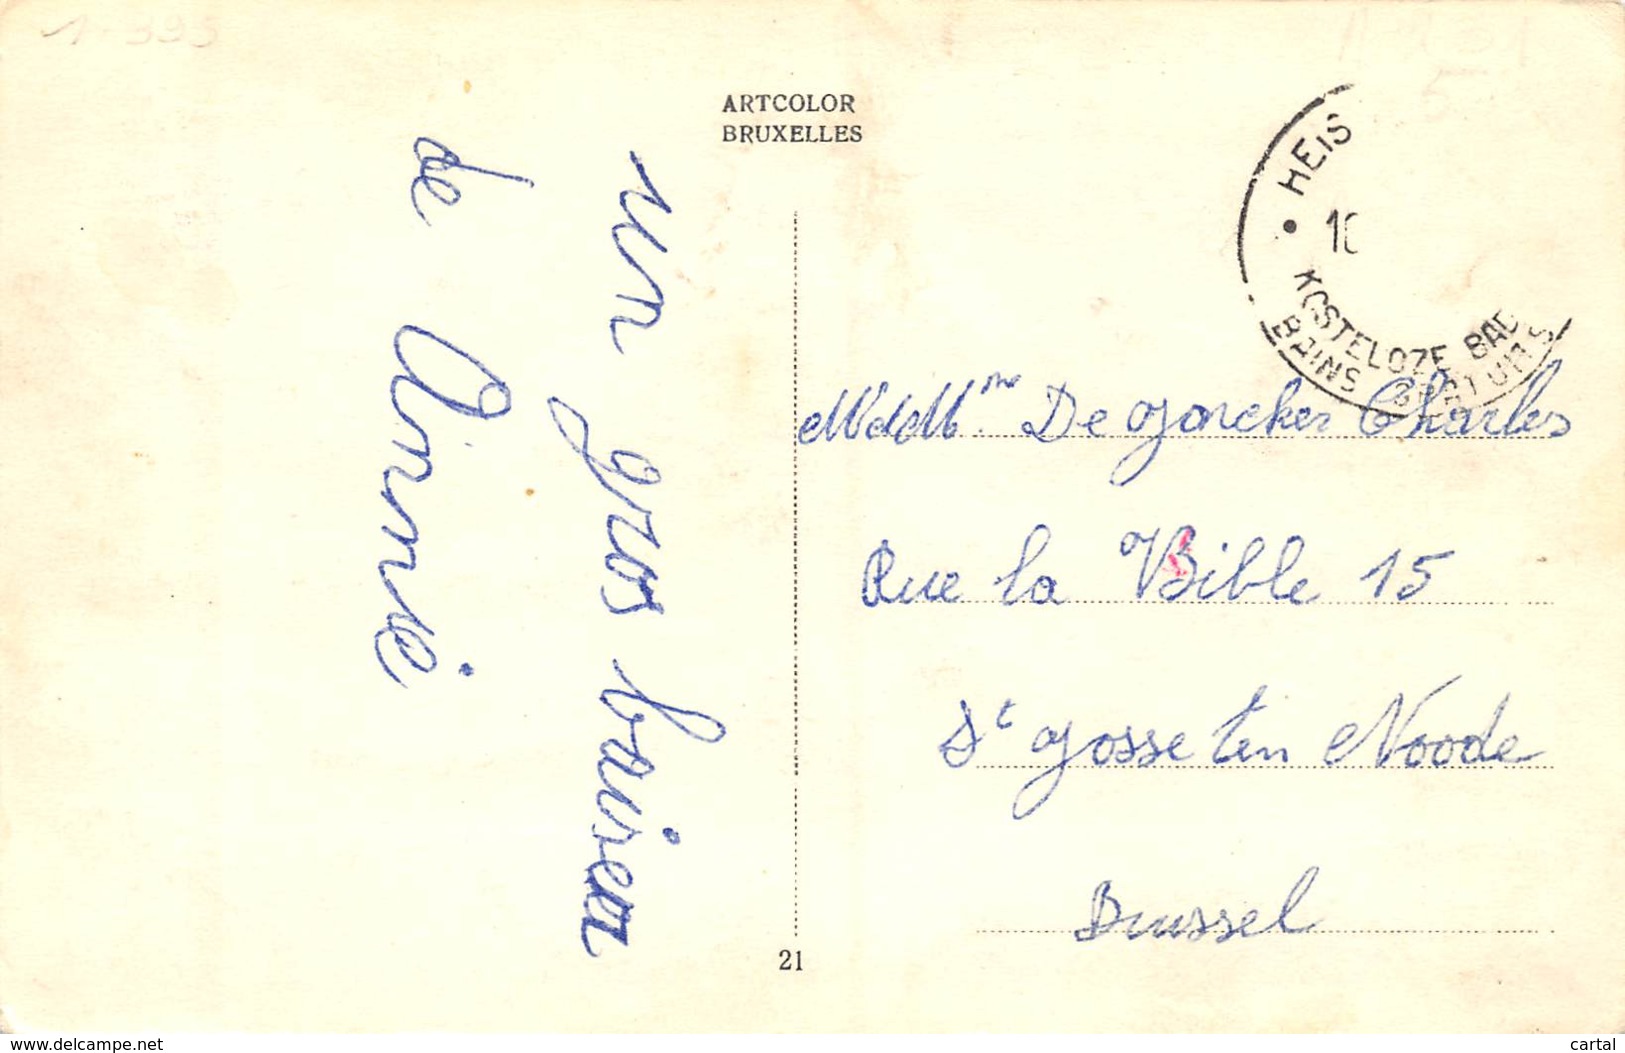 1-395
ARTCOLOR
BRUXELLES
un gros baiser
de Annie
HEIS
10
KOSTELOZE BAD
BAINS GRATUITS
M et Mme De Joncker Charles
Rue la Bible 15
St Josse ten Noode
Brussel
21
www.delcampe.net
cartal